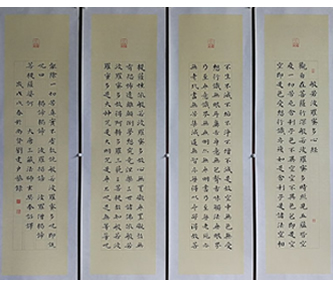 般若波羅蜜多心經
觀自在菩薩行深般若波羅蜜多時照見五蘊皆空
度一切苦厄舍利子色不異空空不異色色即是
空空即是色受想行識亦復如是舍利子是諸法空相
不生不滅不垢不淨不增不減是故空中無色無受
想行識無眼耳鼻舌身意無色聲香味觸法無眼界
乃至無意識界無無明亦無無明盡乃至無老死亦
無老死盡無苦集滅道無智亦無得以無所得故菩
提薩埵依般若波羅蜜多故心無罣礙無罣礙故無
有恐怖遠離顛倒夢想究竟涅槃三世諸佛依般若
波羅蜜多故得阿耨多羅三藐三菩提故知般若波
羅蜜多是大神咒是大明咒是無上咒是無等等咒
能除一切苦真實不虛故說般若波羅蜜多咒即說
咒曰 揭諦揭諦 波羅揭諦 波羅僧揭諦
菩提薩婆訶 唐三藏法師玄奘奉詔譯
戊戌年春